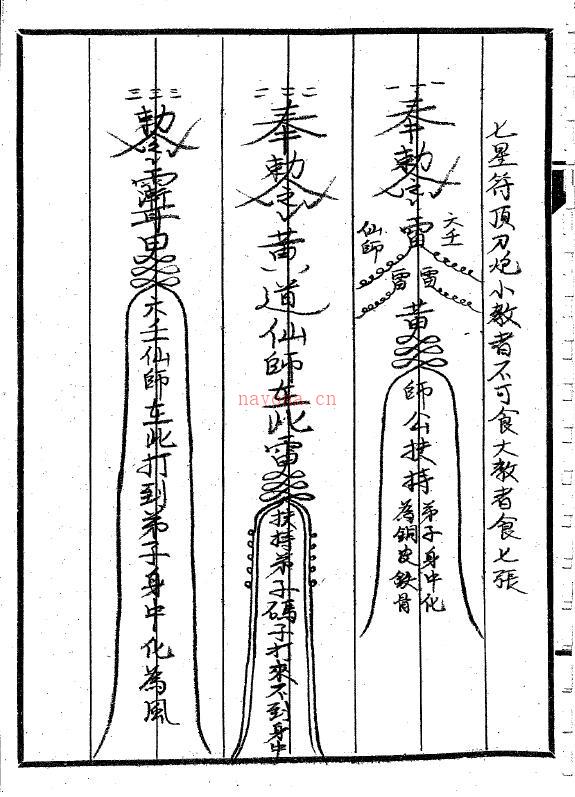 七星符頂刀炮小教者不可食大教者食七張
一 一 一
奉勅令雷
六壬
仙師
雷 雷
黃
師公扶持
弟子身中化
為銅皮鉄骨
二 二 二
奉勅令黃道仙師在此雷
扶持弟子碼子打來不到身中
三 三 三
勅令
六壬仙師在此打到弟子身中化為風
nayona.cn